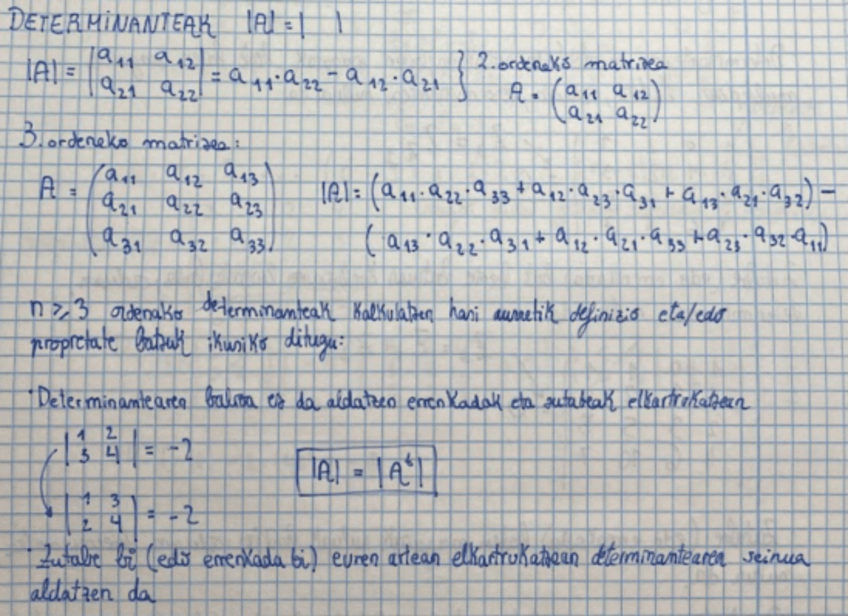 DETERMINANTEAK |A| = |   |
|A| = |a₁₁ a₁₂| = a₁₁·a₂₂ - a₁₂·a₂₁ } 2. ordeneko matrizea
|a₂₁ a₂₂| A = (a₁₁ a₁₂)
(a₂₁ a₂₂)
3. ordeneko matrizea:
A = (a₁₁ a₁₂ a₁₃) |A| = (a₁₁·a₂₂·a₃₃ + a₁₂·a₂₃·a₃₁ + a₁₃·a₂₁·a₃₂) -
(a₂₁ a₂₂ a₂₃)
(a₃₁ a₃₂ a₃₃) (a₁₃·a₂₂·a₃₁ + a₁₂·a₂₁·a₃₃ + a₂₃·a₃₂·a₁₁)
n ≥ 3 ordenako determinanteak kalkulatzen hasi aurretik definizio eta/edo
propietate batzuk ikusiko ditugu:
· Determinantearen balioa ez da aldatzen errenkadak eta zutabeak elkartrukatzean
|1 2| = -2
|3 4|
|A| = |Aᵗ|
|1 3| = -2
|2 4|
· Zutabe bi (edo errenkada bi) euren artean elkartrukatzean determinantearen zeinua
aldatzen da